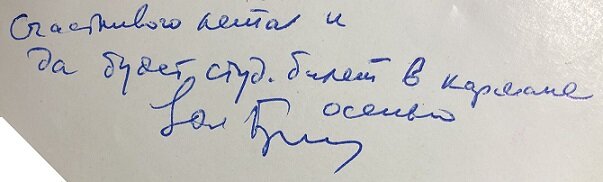 Счастливого лета и
да будет студ. билет в кармане
осенью